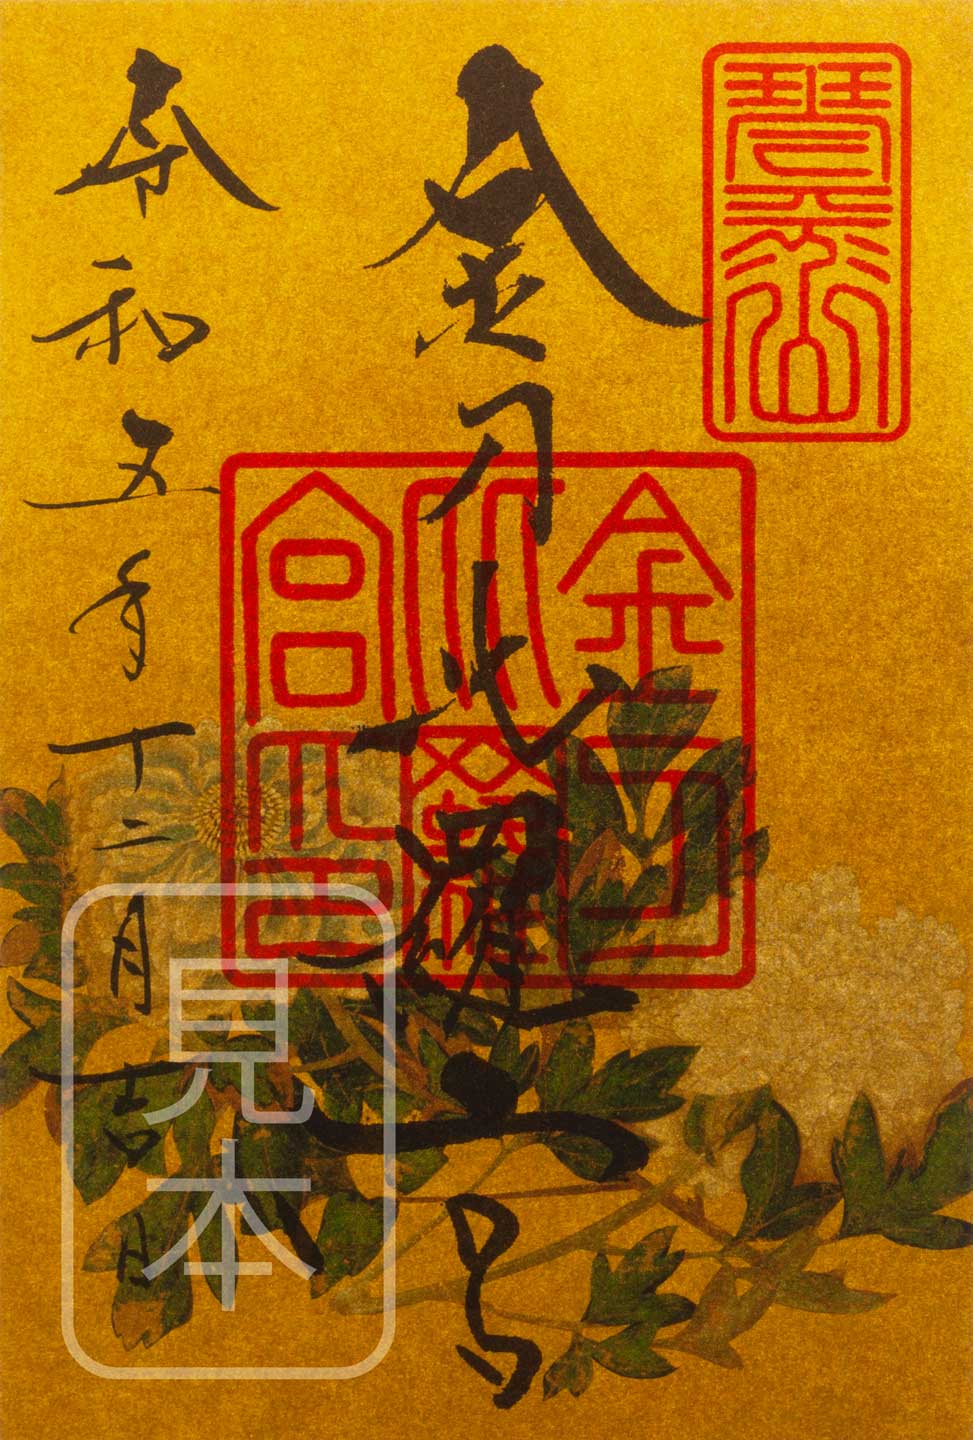 琴平山
金刀比羅宮
金刀
比羅
宮印
令和五年十二月吉日
見本